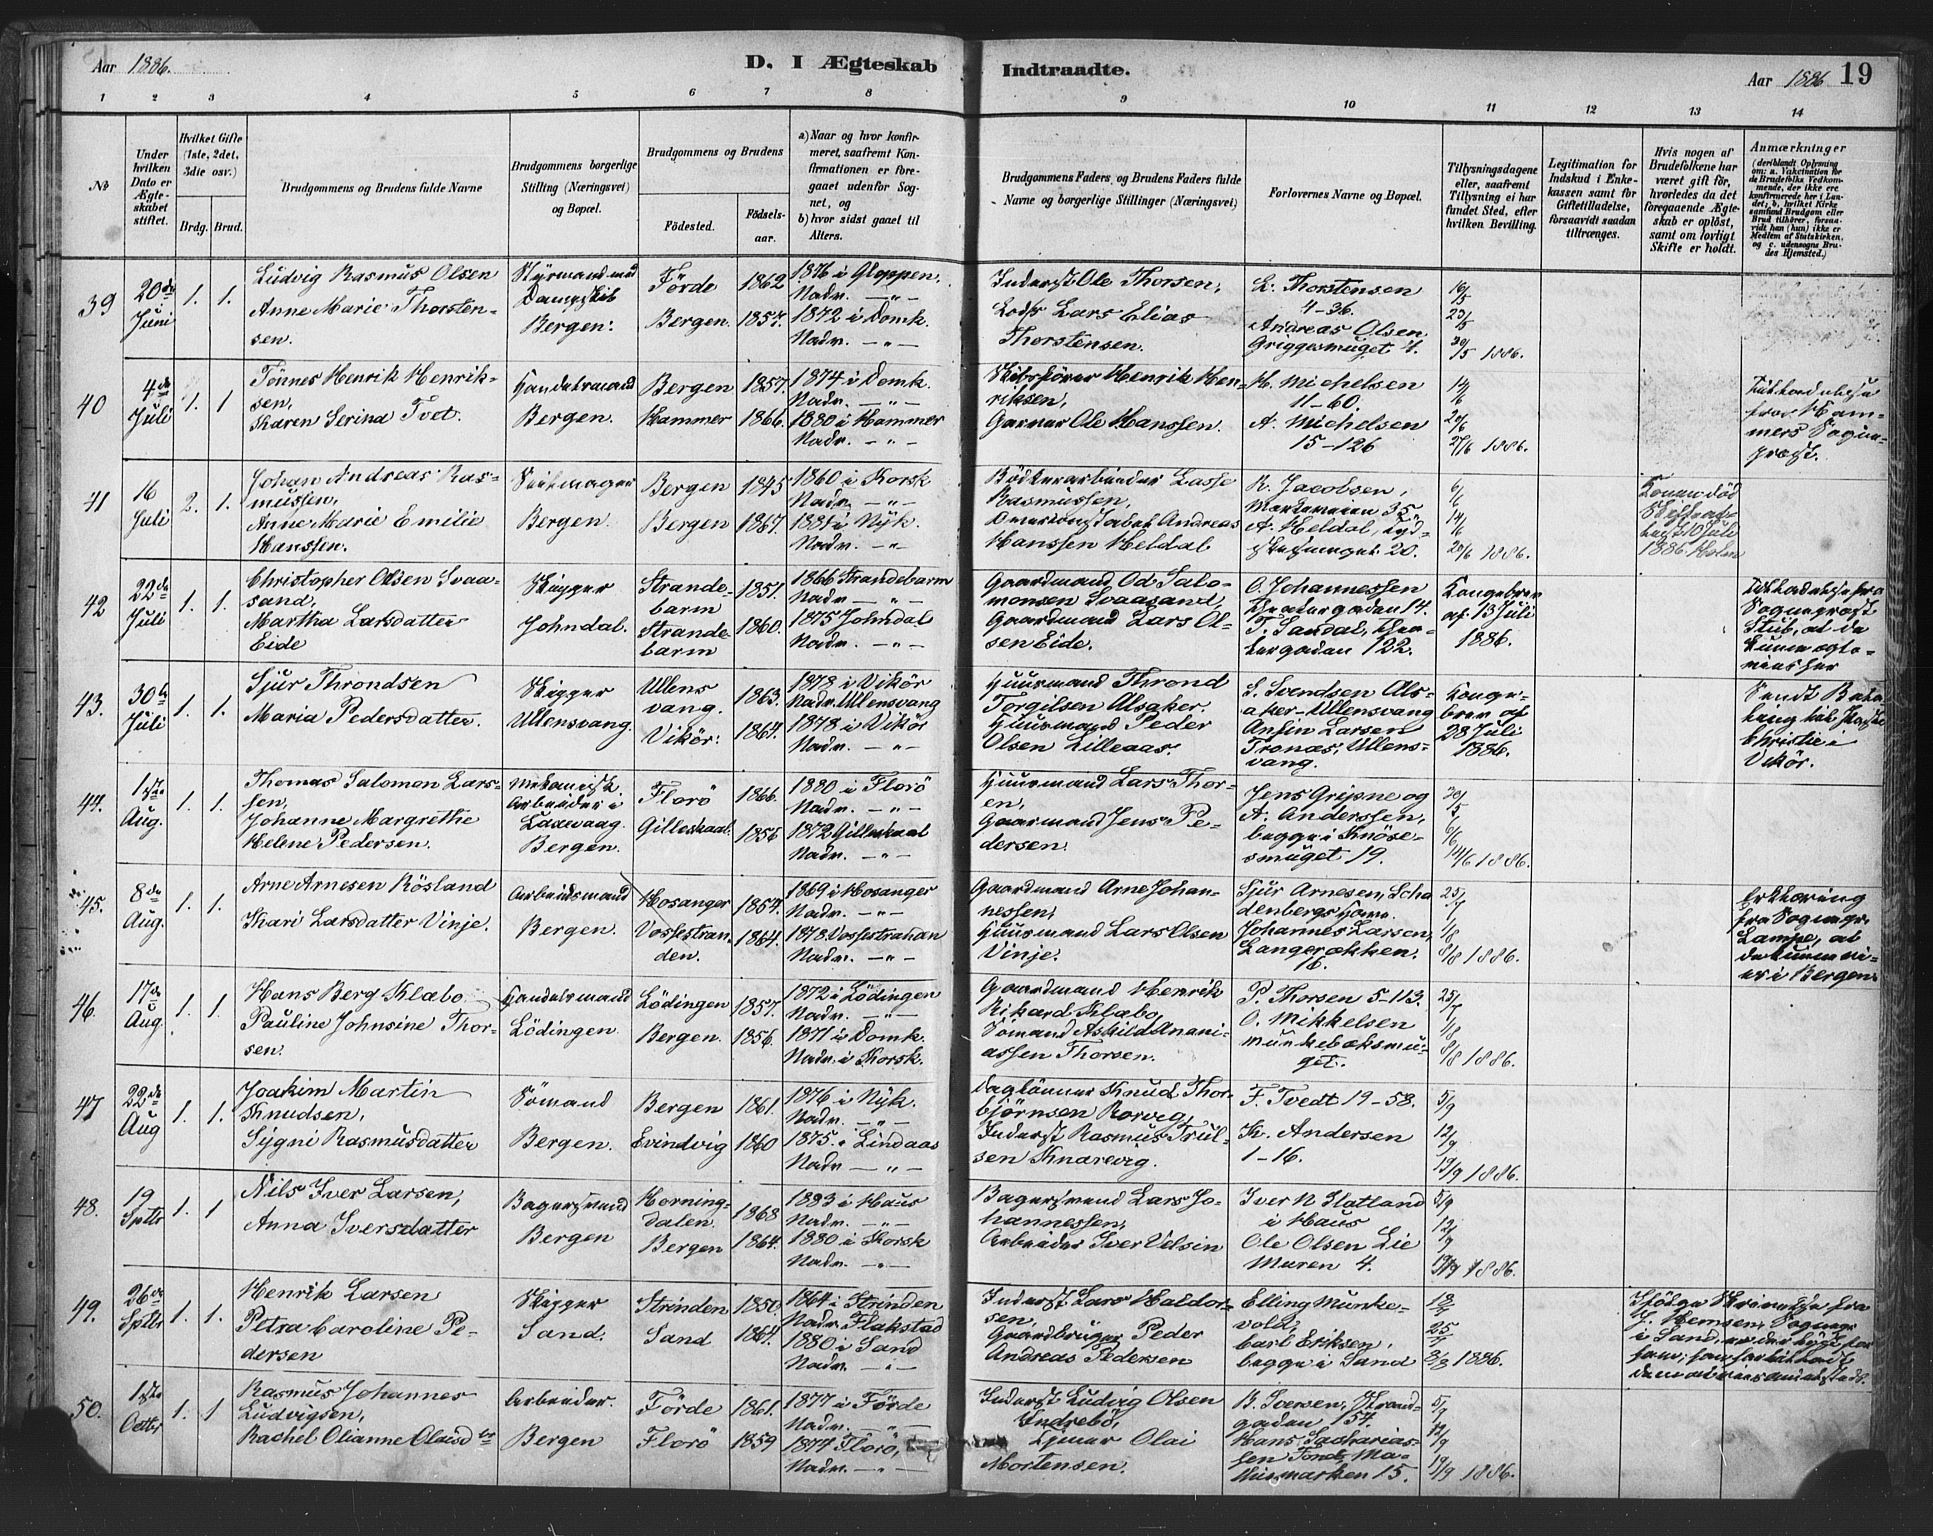 Aar 1886.
D. I Ægteskab
Indtraadte.
Aar 1886
19
1 2 3 4 5 6 7 8 9 10 11 12 13 14
No
Under hvilken Dato er Ægteskabet stiftet.
Hvilket Gifte (1ste, 2det, 3die osv.)
Brdg. Brud.
Brudgommens og Brudens fulde Navne
Brudgommens borgerlige Stilling (Næringsvei) og Bopæl.
Brudgommens og Brudens
Fødested.
Fødselsaar.
a) Naar og hvor konfirmeret, saafremt Konfirmationen er foregaaet udenfor Sognet, og
b) hvor sidst gaaet til Alters.
Brudgommens Faders og Brudens Faders fulde Navne og borgerlige Stillinger (Næringsvei)
Forlovernes Navne og Bopæl.
Tillysningsdagene eller, saafremt Tillysning ei har fundet Sted, efter hvilken Bevilling.
Legitimation for Indskud i Enkekassen samt for Giftetilladelse, forsaavidt saadan tiltrænges.
Hvis nogen af Brudefolkene har været gift før, hvorledes da det foregaaende Ægteskab er opløst, samt om lovligt Skifte er holdt.
Anmærkninger
(deriblandt Oplysning om: a. Vakcination for de Brudefolks Vedkommende, der ikke ere konfirmerede her i Landet; b. hvilket Kirkesamfund Brudgom eller Brud tilhører, forsaavidt han (hun) ikke er Medlem af Statskirken, og c. udensogns Brudes Hjemsted.)
39 20de Juni 1. 1.
Ludvig Rasmus Olsen
Anne Marie Thorstensen.
Styrmand med Dampskib
Bergen.
Förde 1862
Bergen. 1857.
1876 i Gloppen.
Nadv. —"—
1872 i Domk.
Nadv. —"—
Inderst Ole Thorsen,
Lods Lars Elias Thorstensen.
L. Thorstensen
4-36.
Andreas Olsen
16/5
23/5
30/5 1886.
40 4de Juli 1. 1
Tönnes Henrik Henriksen,
Karen Serina Tvet.
Handelsmand
Bergen.
Bergen 1857.
Hammer 1866.
1874 i Domk.
Nadv. —"—
1880 i Hammer
Nadv. —"—
Skibsförer Henrik Henriksen,
Garver Ole Hanssen.
H. Michelsen
11-60.
A. Michelsen
15-126
14/6
20/6
27/6 1886.
Tilladelse fra Hammers Sognepræst.
41 16 Juli 2. 1.
Johan Andreas Rasmussen,
Anne Marie Emilie Hanssen.
Seilmager
Bergen.
Bergen 1845
Bergen 1867.
1860 i Korsk
Nadv. —"—
1881 i Nyk.
Nadv. —"—
Bödkerarbeider Lasse Rasmussen,
Andreas Hanssen Heldal
R. Jacobsen,
35
A. Heldal,
20.
6/6
14/6
20/6 1886.
Konen död
10 Juli
1886
42 22de Juli 1. 1.
Christopher Olsen Svaasand,
Martha Larsdatter Eide
Skipper
Johndal.
Strandebarm 1851.
Strandebarm 1860.
1866 Strandebarm
Nadv. —"—
1875 Johndal
Nadv. —"—
Gaardmand Od Salomonsen Svaasand,
Gaardmand Lars Olsen Eide.
O. Johannessen
Theatergaden 14.
T. Sandal, Theatergaden 122.
Kongebrev
af 13 Juli
1886.
Tilladelse fra
Sognepræst
Stub, at de
kunne ægtevies her
43. 30te Juli 1. 1.
Sjur Throndsen
Maria Pedersdatter.
Skipper
Ullensvang.
Ullensvang. 1863.
Vikör. 1864.
1878 i Vikör
Nadv. Ullensvang
1878 i Vikör
Nadv. —"—
Huusmand Thrond Torgilsen Alsaker.
Huusmand Peder Olsen Lilleaas.
S. Svendsen Alsaker-Ullensvang
Ansin Larsen
Tronæs, Ullensvang.
Kongebrev af
28 Juli
1886.
Sendt
Christie i
Vikör.
44. 1ste Aug. 1. 1.
Thomas Salomon Larssen,
Johanne Margrethe Helene Pedersen.
Mekanisk Arbeider i Laxevaag.
Bergen.
Florö 1866.
Gilleskaal. 1856
1880 i Florö
Nadv. —"—
1872 Gilleskaal
Nadv. —"—
Huusmand Lars Thoren,
Gaarmand Jens Pedersen.
Jens Gripne og
A. Anderssen,
begge i Knösesmuget 19.
30/5
6/6
14/6 1886.
45. 8de Aug. 1. 1.
Arne Arnesen Rösland
Kari Larsdatter Vinje.
Arbeidsmand
Bergen.
Hosanger 1857.
Vossestranden. 1864.
1869 i Hosanger
Nadv. —"—
1878. Vossestranden
Nadv. —"—
Gaardmand Arne Johannessen,
Huusmand Lars Olsen Vinje.
Sjur Arnesen,
Johannes Larsen,
Langerækken.
16.
25/7
1/8
8/8 1886.
Erklæring
fra Sognepr.
Lampe, at
de kunne vies i Bergen.
46. 17de Aug. 1. 1
Hans Berg Klæbo
Pauline Johnsine Thorsen.
Handelsmand
Lödingen.
Lödingen 1857.
Bergen. 1856.
1872 i Lödingen
Nadv. —"—
1871 i Domk.
Nadv. i Korsk.
Gaardmand Henrik Rikard Klæbo,
Sömand Askild Ananiassen Thorsen.
P. Thorsen 5-113.
O. Mikkelsen
Munkebæksmuget.
25/7
1/8
8/8 1886.
47 22de Aug 1. 1.
Joakim Martin Knudsen,
Sygni Rasmusdatter
Sömand
Bergen.
Bergen 1861.
Evindvig 1860
1876 i Nyk.
Nadv. —"—
1875. i Lindaas
Nadv. —"—
Daglönner Knud Thorbjörnsen Rorveg,
Inderst Rasmus Trulsen Knarvig.
F. Tvedt 19-58.
K. Andersen
1-16.
5/9
12/9
19/9 1886.
48. 19 Septbr 1. 1
Nils Iver Larsen,
Anna Iversdatter
Bagersvend
Bergen
Horningdalen. 1868
Bergen 1864.
1883 i Haus
Nadv. —"—
1880 i Korsk
Nadv. —"—
Bagersvend Lars Johannessen,
Arbeider Iver Velsin
Iver N Hatland
i Haus
Ole Olsen Lie
Muren 4.
5/9
12/9
19/9 1886.
49. 26de Septbr 1. 1.
Henrik Larsen
Petra Caroline Pedersen
Skipper
Sand.
Strinden 1850.
Sand 1864.
1864 i Strinden
Nadv. Flakstad
1880 i Sand
Nadv. —"—
Inderst Lars Haldorsen,
Gaardbruger Peder Andreas Pedersen
Elling Munkevold,
Carl Eriksen,
begge i Sand
18/7
25/7
1886.
Hemsen, Sognepr
i Sand,
50. 1ste Octbr 1. 1
Rasmus Johannes Ludvigsen,
Rachel Olianne Olaisdtr
Arbeider.
Bergen
Förde 1861.
Florö 1859
1877 i Förde
Nadv. —"—
1874 Florö,
Nadv. —"—
Inderst Ludvig Olsen Indrebö,
Ejnar Olai Mortensen.
B. Iversen, Strandgaden 154.
Hans Sacharias
15.
5/9
12/9
19/9 1886.